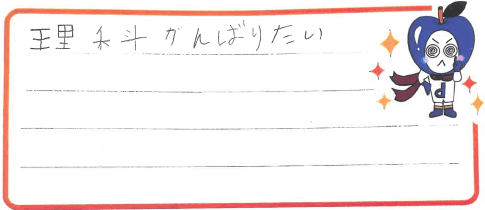 理科がんばりたい
d